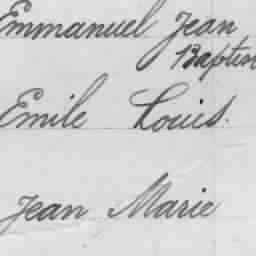 Emmanuel Jean
Baptis
Emile Louis.
Jean Marie